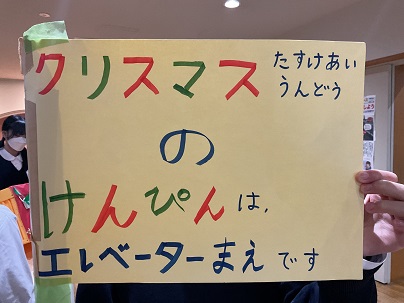 クリスマス たすけあい
うんどう
の
けんぴんは,
エレベーターまえです